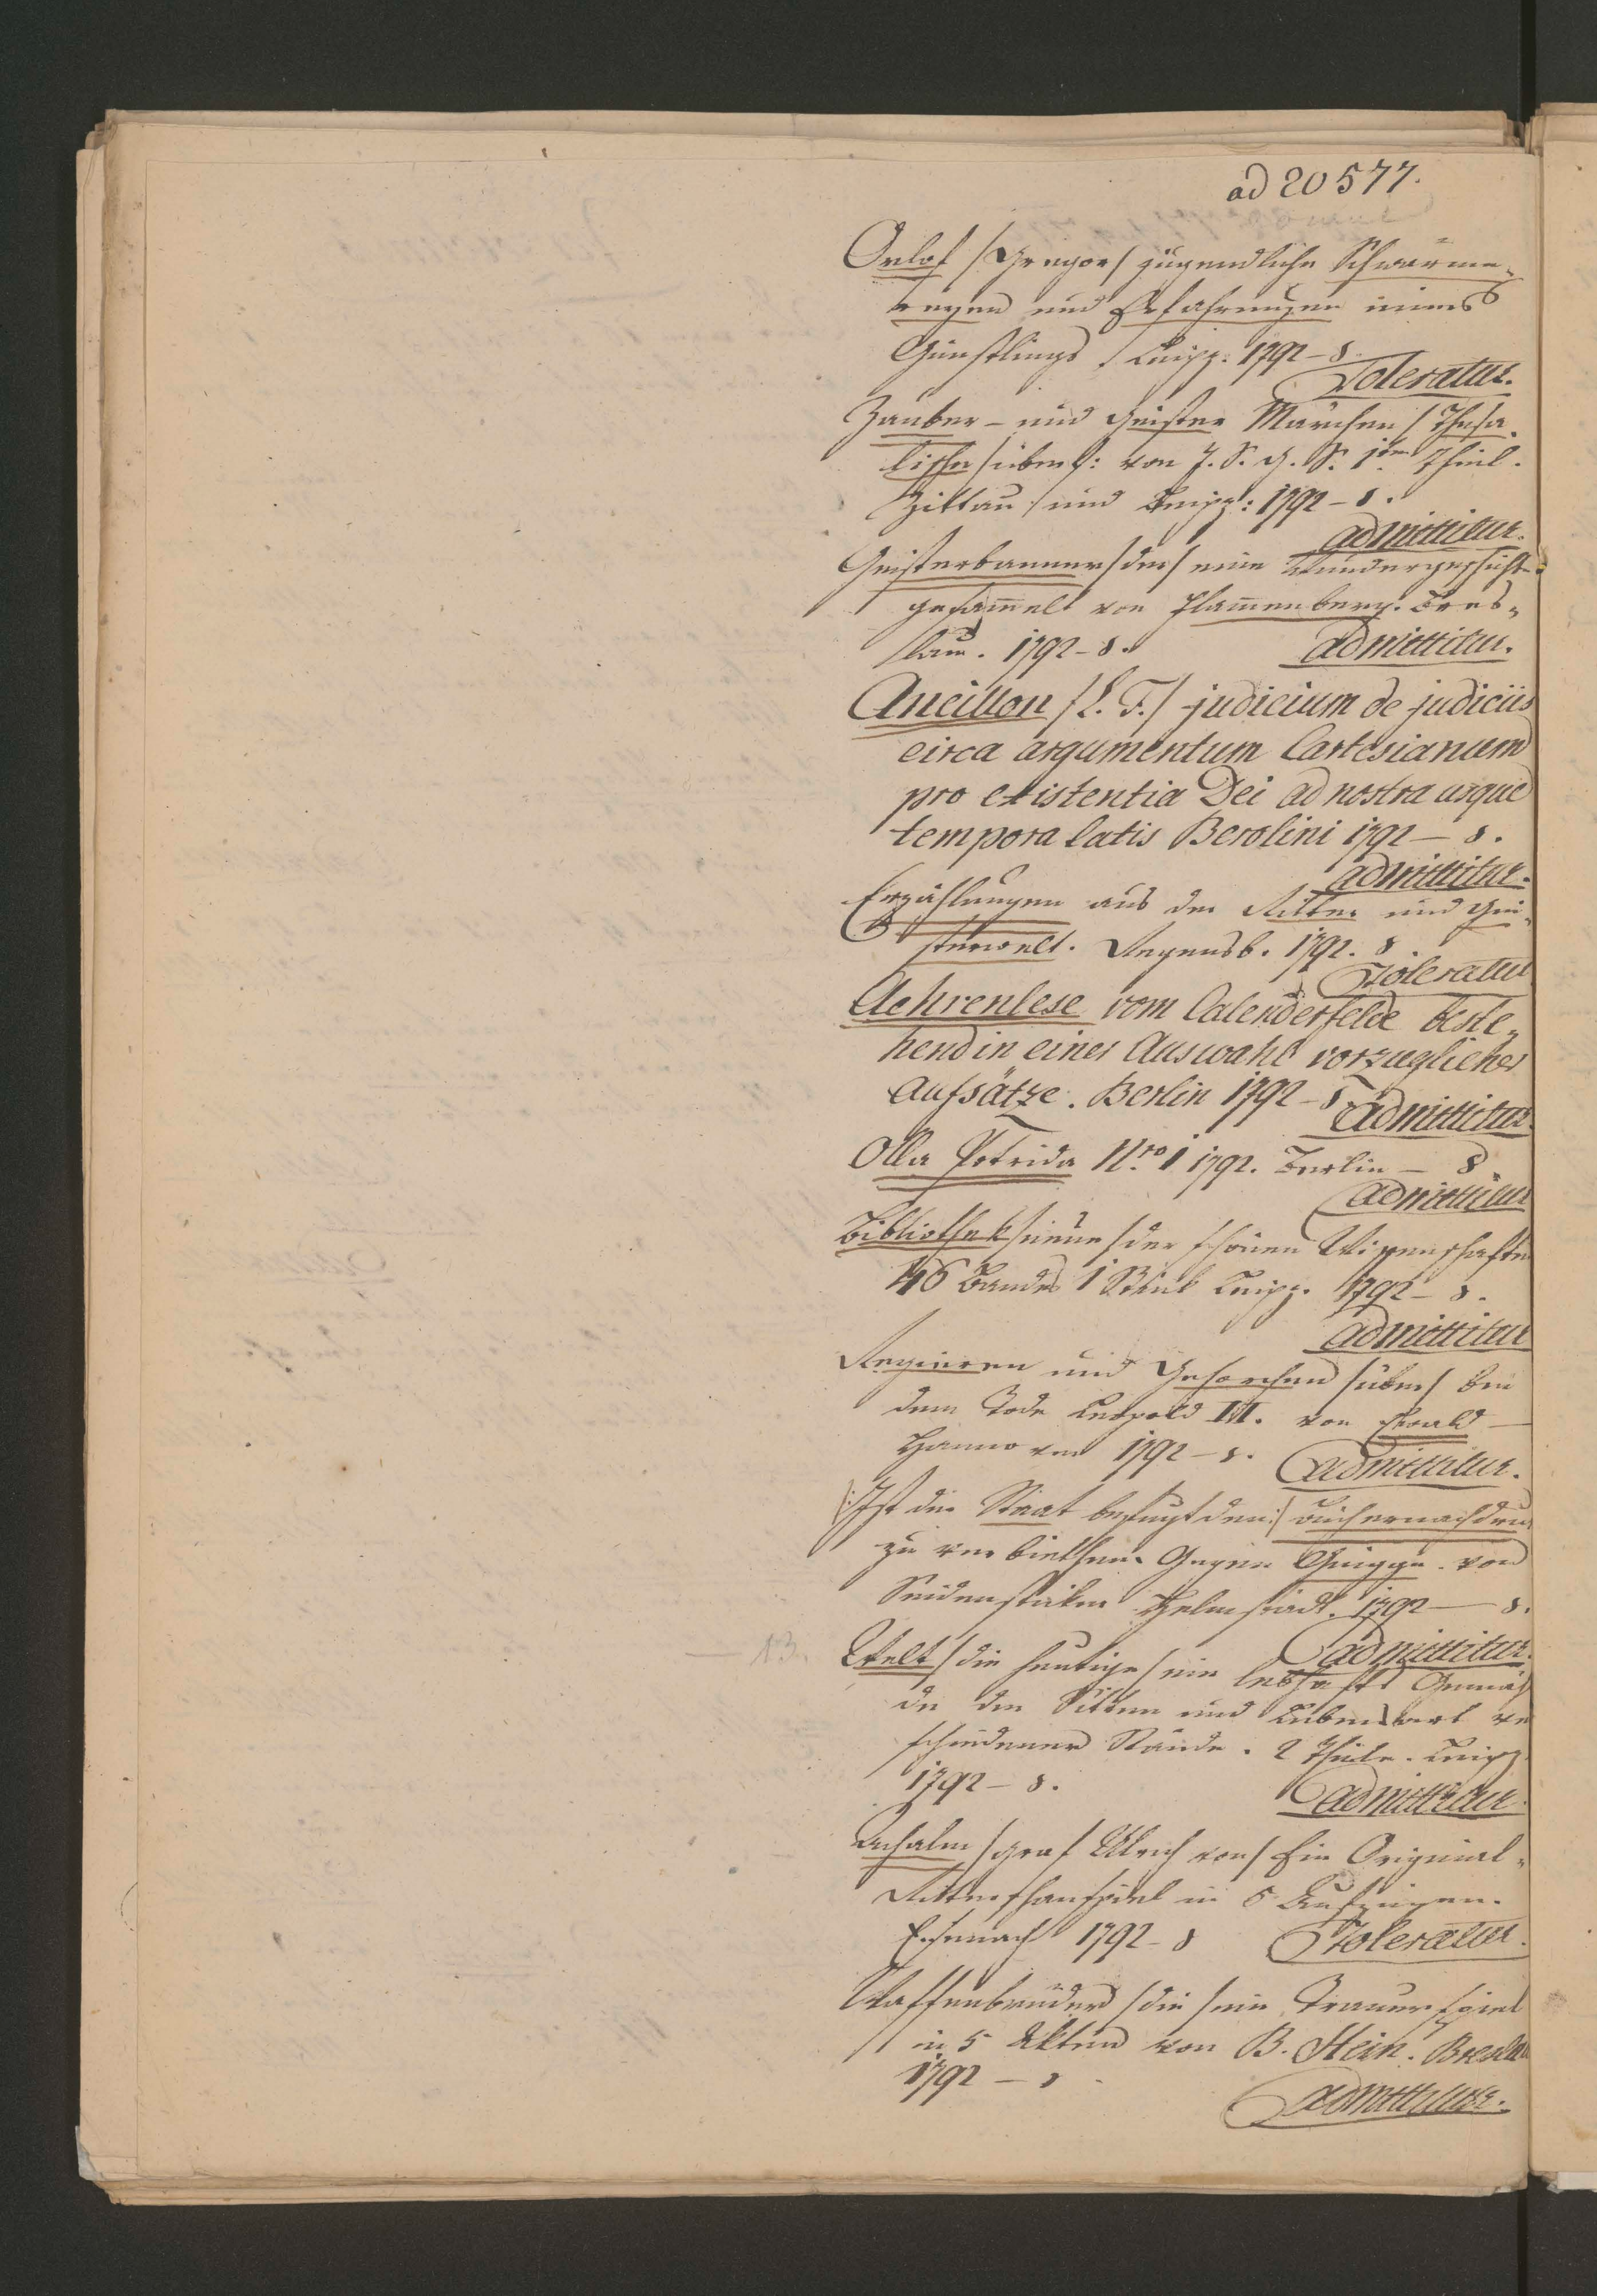 ad 20577.
Orlof /Gregor/ jugendliche Schwärme-
reyen und Erfahrungen eines
Günstlings. Leipz. 1792 – 8.
Toleratur.
Zauber- und Geister Märchen / Thesa-
lische / übers: von J. S. G. S. 1ter Theil.
Zittau und Leipz: 1792 – 8.
admittitur.
Geisterbanner / der / eine Wundergeschichte
gesam̅elt von Flam̅enberg. Bres-
lau. 1792 – 8.
admittitur.
Ancillon /L. F./ judicium de judiciis
circa argumentum Cartesianum
pro existentia Dei ad nostra usque
tempora latis Berolini 1792 – 8.
admittitur.
Erzählungen aus der Ritter und Gei-
sterwelt. Regensb. 1792. 8.
Toleratur
Aehrenlese vom Calenderfelde beste-
hend in einer Auswahl vorzüglicher
Aufsätze. Berlin 1792 – 8.
admittitur.
Olla Potrida Nro 1 1792. Berlin – 8.
admittitur
Bibliothek / neue / der schönen Wissenschaften
46 Bandes 1 Stück Leipz. 1792 – 8.
admittitur
Regieren und Gehorchen / über / bei
dem Tode Leopold II. von Ewald –
Hannover 1792 – 8.
admittitur.
/:Ist der Staat befugt den:/ Büchernachdruck
zu verbiethen. Gegen Knigge. von
Seidenstiker Helmstädt. 1792 – 8.
admittitur.
Welt / die heutige / ein lebhaftes Gemäl
de der Sitten und Lebensart ver
schiedener Stände. 2 Theile. Leipz.
1792 – 8.
admittitur.
Achalm / Graf Ulrich von / Ein Original-
Ritterschauspiel in 5 Aufzügen.
Eisenach 1792 – 8
Toleratur.
Waffenbrüder / die / ein Trauerspiel
in 5 Akten von B. Stein. Breslau
1792 – 8
admittitur.